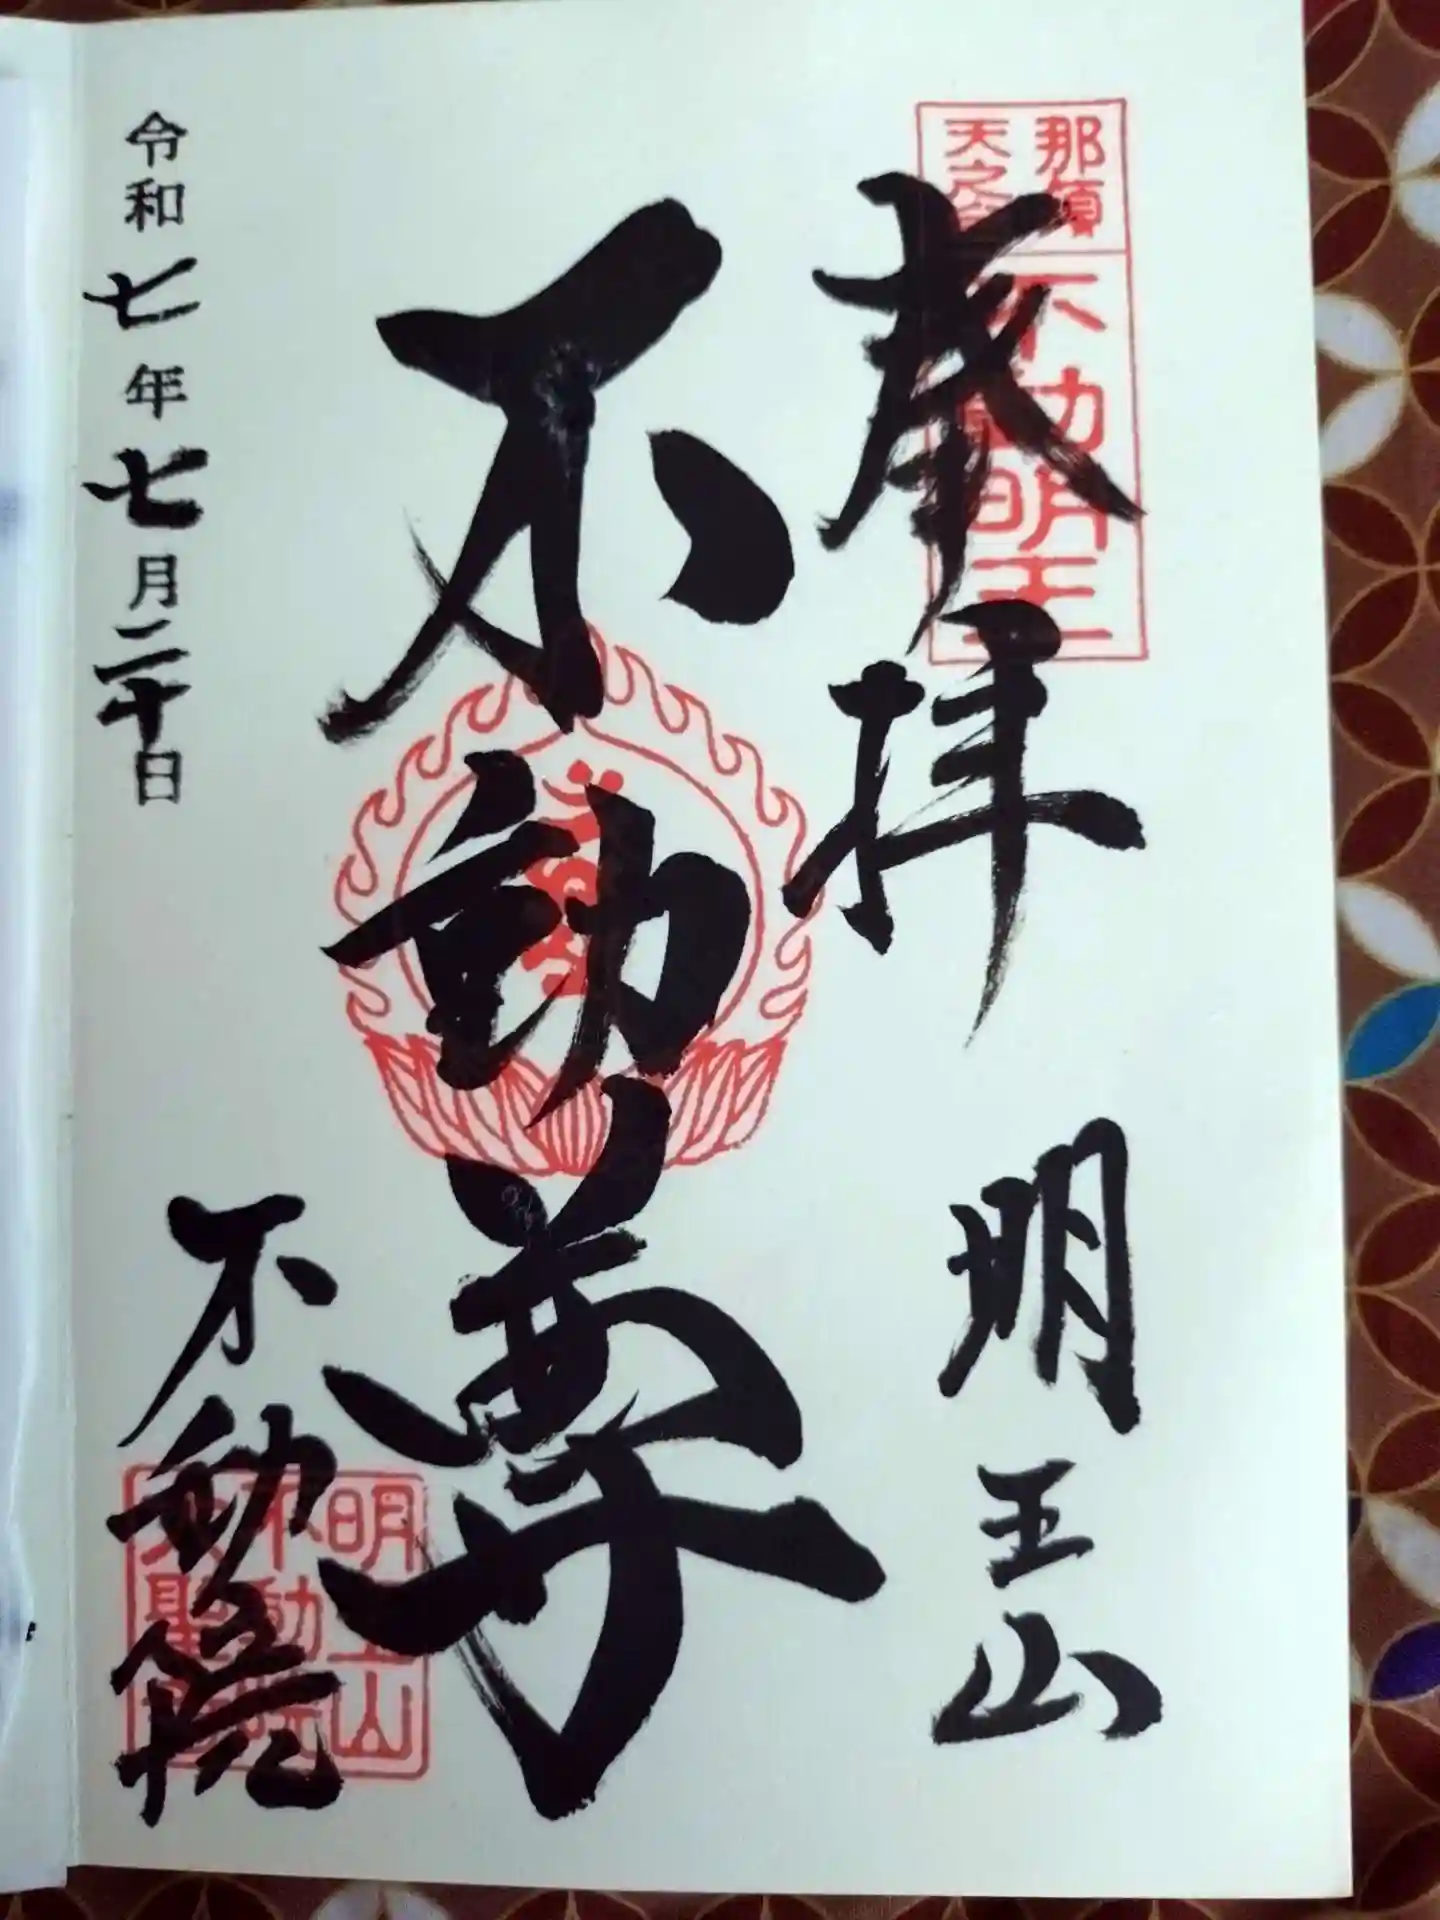 奉拝
明王山
那須
天之
不動明王
不動尊
令和七年七月二十日
不動院
明王山
不動院